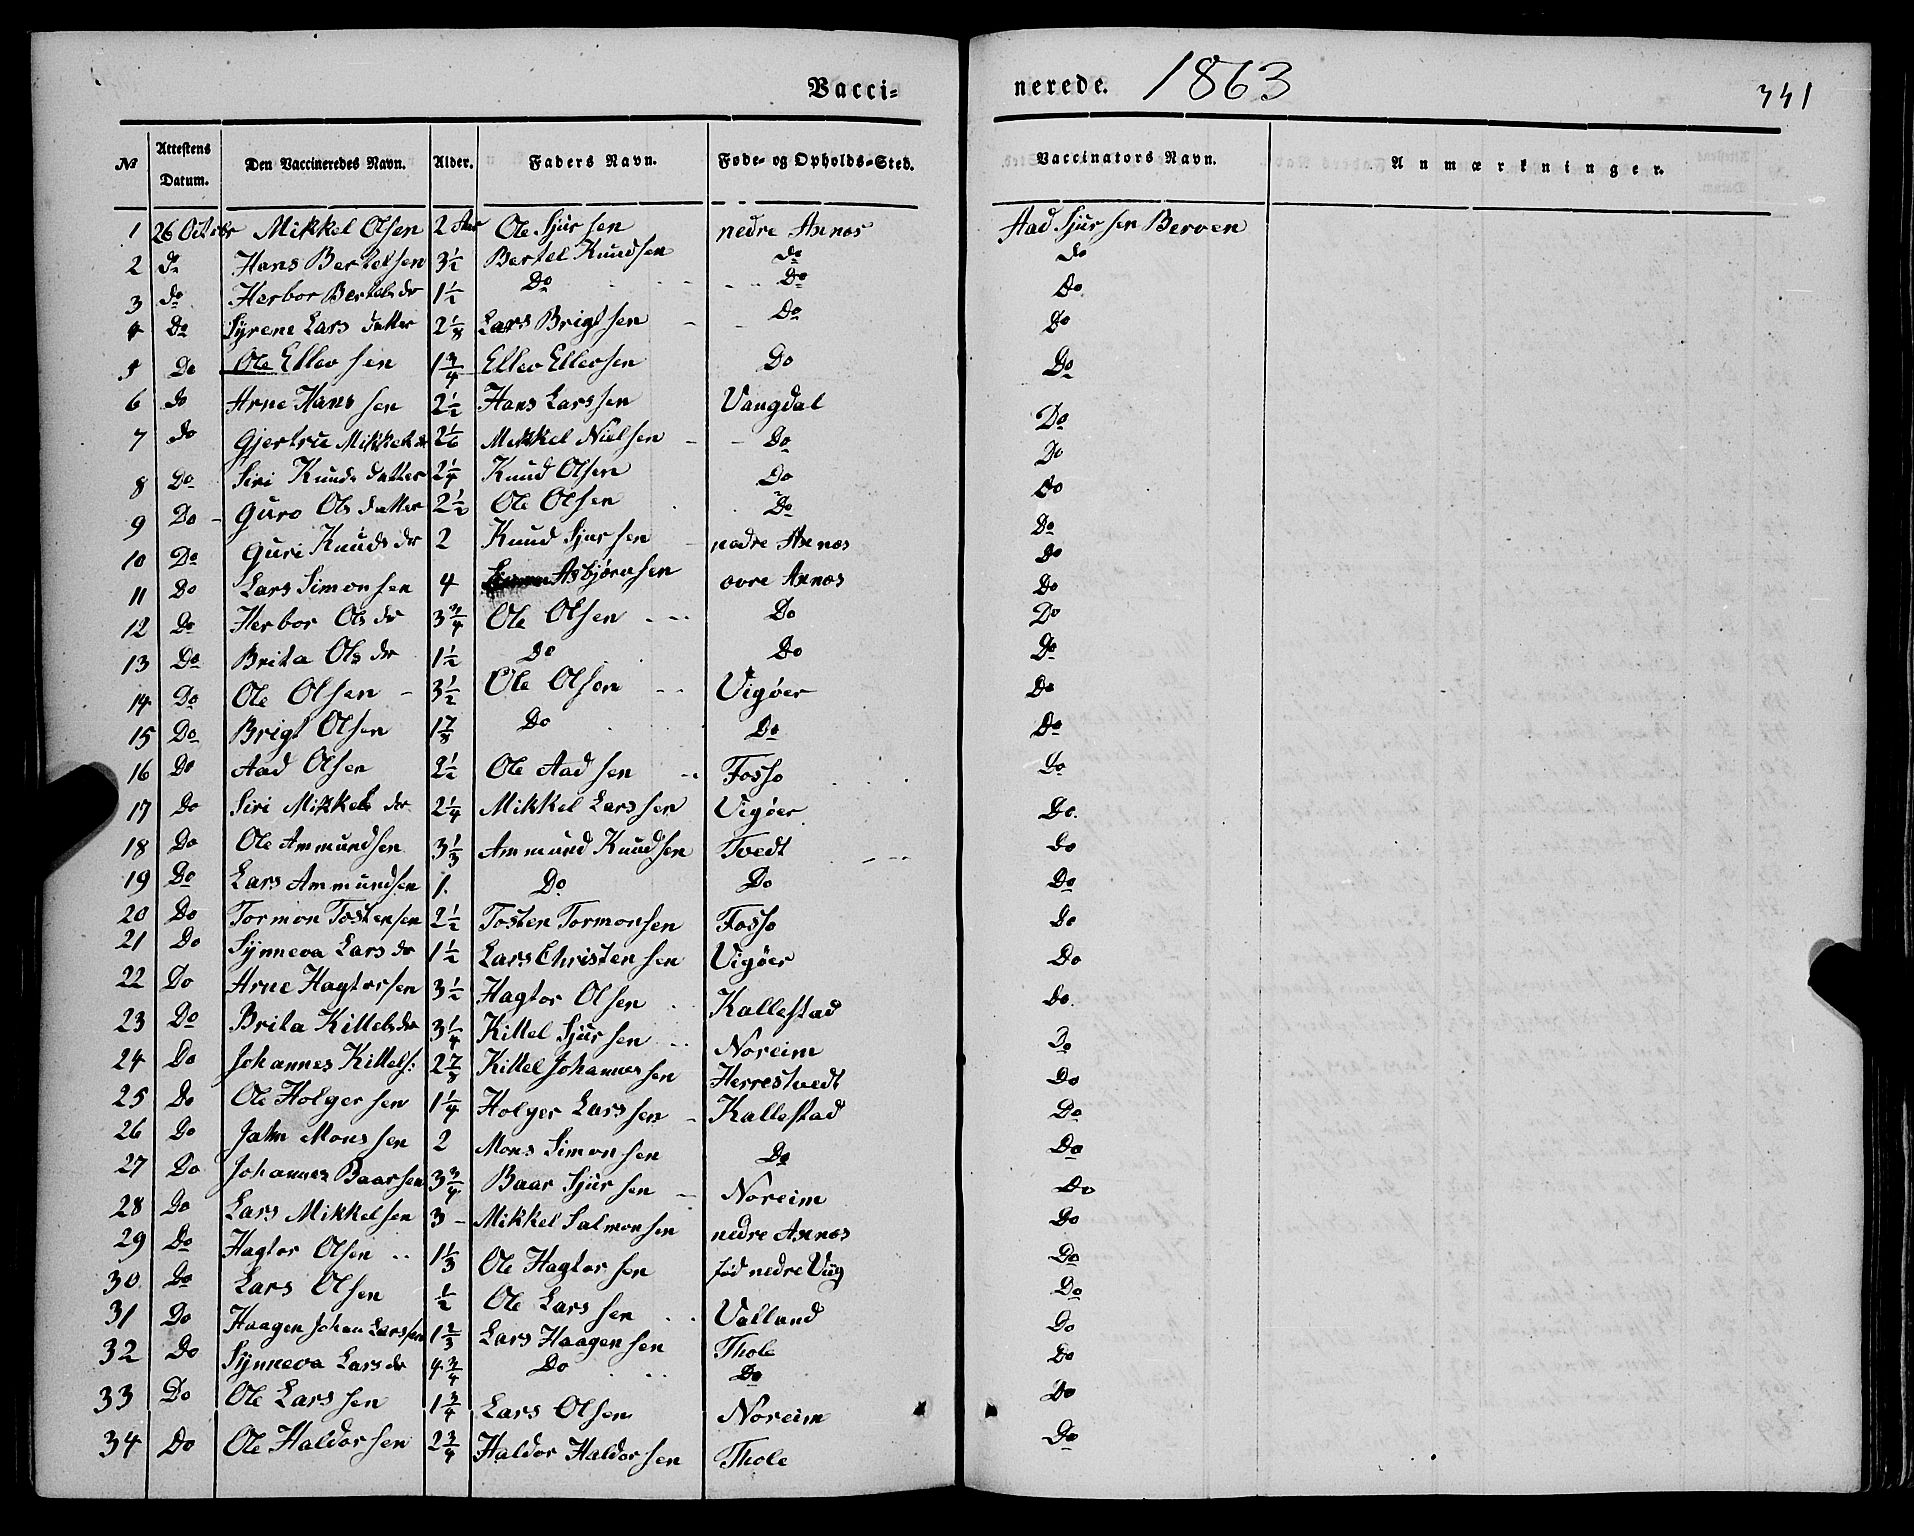 Vacci- nerede. 1863 341
№ Attestens Datum. Den Vaccineredes Navn. Alder. Faders Navn. Føde- og Opholds-Sted. Vaccinators Navn. Anmærkninger.
1 26 October Mikkel Olsen 2 Aar Ole Sjursen nedre Axnæs Aad Sjursen Berven
2 do Hans Bertelsen 3½ Bertel Knudsen do do
3 do Herbor Bertelsdr 1½ Do Do Do
4 Do Syrene Larsdatter 2⅛ Lars Brigtsen Do Do
5 Do Ole Ellevsen 1¾ Ellev Ellevsen Do Do
6 do Arne Hanssen 2½ Hans Larssen Vangdal Do
7 do Gjertrue Mikkelsdr 2⅙ Mikkel Nielsen Do Do
8 Do Siri Knudsdatter 2¼ Knud Olsen Do Do
9 Do Guro Olsdatter 2½ Ole Olsen Do Do
10 Do Guri Knudsdr 2 Knud Sjursen nedre Axnæs Do
11 Do Lars Simonsen 4 Asbjørnsen øvre Axnæs Do
12 Do Herbor Olsdr 3¾ Ole Olsen Do Do
13 Do Brita Olsdr 1½ Do Do Do
14 Do Ole Olsen 3½ Ole Olsen Vigøer Do
15 Do Brigt Olsen 1⅞ Do Do Do
16 Do Aad Olsen 2½ Ole Aadsen Fosso Do
17 Do Siri Mikkelsdr 2¼ Mikkel Larssen Vigøer Do.
18 Do Ole Ammundsen 3⅓ Ammund Knudsen Tvedt Do
19 Do Lars Ammundsen 1. Do Do Do
20 Do Tormon Tostensen 2½ Tosten Tormonsen Fosso Do
21 Do Synneva Larsdr 1½ Lars Christensen Vigøer Do
22 Do Arne Hagtorsen 3½ Hagtor Olsen Kallestad Do.
23 Do Brita Kittelsdr 3¼ Kittel Sjursen Noreim Do
24 Do Johannes Kittels: 2⅞ Kittel Johannessen Herrestvedt Do
25 Do Ole Holgersen 1¼ Holger Larssen Kallestad Do
26 Do John Monssen 2 Mons Simonsen Do Do
27 Do Johannes Baarsen 3¾ Baar Sjursen Noreim Do
28 Do Lars Mikkelsen 3 Mikkel Salmonsen nedre Axnæs Do
29 Do Hagtor Olsen 1⅓ Ole Hagtorsen fød nedre Vug Do
30 Do Lars Olsen ½ Ole Larssen Valland Do
31 Do Haagen Johan Larssen 1⅔ Lars Haagensen Thole Do
32 Do Synneva Larsdr 4¾ Do Do Do
33 Do Ole Larssen 1¾ Lars Olsen Noreim Do
34 Do Ole Haldorsen 2¾ Haldor Haldorsen Thole Do